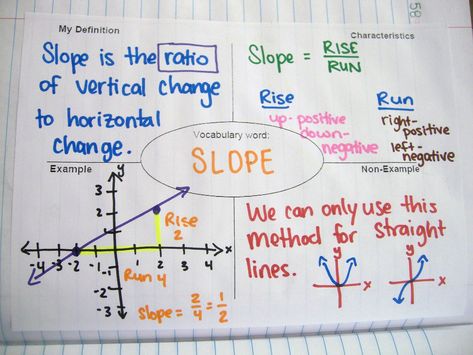 58
My Definition
Slope is the ratio
of vertical change
to horizontal
change.
Characteristics
Slope = RISE
RUN
Rise
up - positive
down-
negative
Run
right-
positive
left-
negative
Vocabulary word:
SLOPE
Example
y
3
2
1
-4 -3 -2 -1 1 2 3 4 x
-1
-2
-3
Rise
2
Run 4
Slope = 2/4 = 1/2
Non-Example
We can only use this
method for straight
lines.
y y
x x